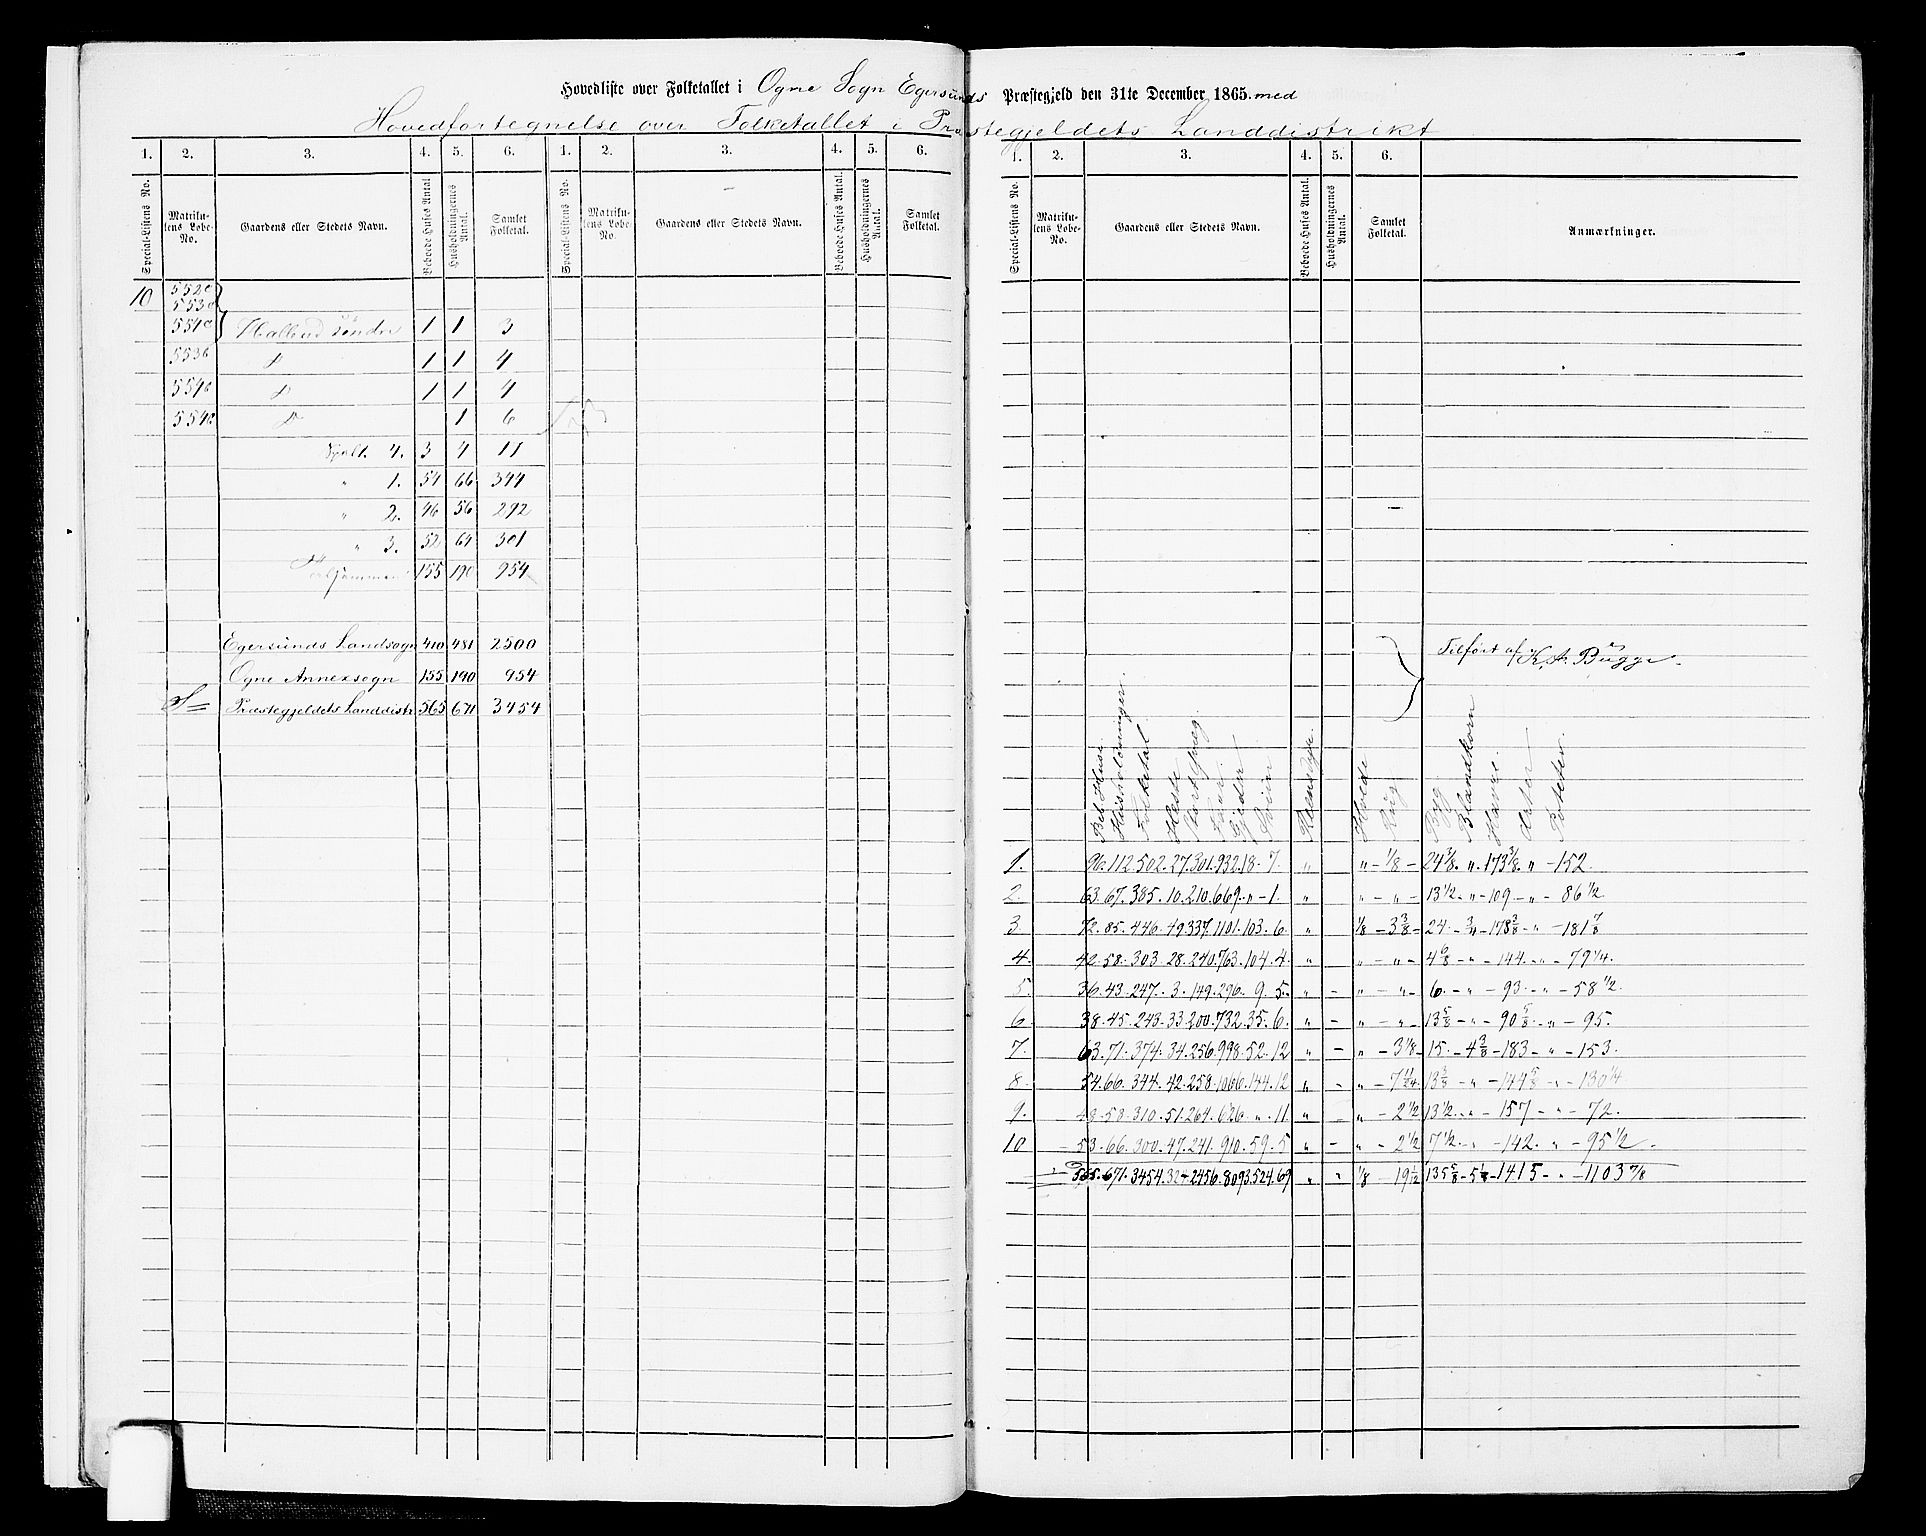 Hovedliste over Folketallet i Ogne Sogn Egersunds Præstegjeld den 31te December 1865. med
Hovedfortegnelse over Folketallet i Præstegjeldets Landdistrikt
1. 2. 3. 4. 5. 6. 1. 2. 3. 4. 5. 6.
Special-Listens No. Matrikulens Løbe-No. Gaardens eller Stedets Navn. Beboede Huses Antal Husholdningernes Antal. Samlet Folketal. Special-Listens No. Matrikulens Løbe-No. Gaardens eller Stedets Navn. Beboede Huses Antal. Husholdningernes Antal. Samlet Folketal.
10 552c
553c
554c Halland søndre 1 1 3
553b D 1 1 4
554b D 1 1 4
554c D 1 6
Spalt. 4. 3 4 11
" 1. 54 66 344
" 2. 46 56 292
" 3. 52 64 301
Tilsammen 155 190 954
Egersunds Landsogn 410 481 2500
Ogne Annexsogn 155 190 954
S= Præstegjeldets Landdistr 565 671 3454
1. 2. 3. 4. 5. 6.
Special-Listens No. Matrikulens Løbe-No. Gaardens eller Stedets Navn. Beboede Huses Antal. Husholdningernes Antal. Samlet Folketal. Anmærkninger.
Tilført af K. A. Bugge.
Beb. Huse. Husholdninger. Folketal Heste Stort Qvæg Faar. Gjeder Sviin Reensdyr. Hvede Rug Byg Blandkorn Havre Erter Poteter.
1. 96. 112. 502. 27. 301. 932. 18. 7. " " - 1/8 - 24 3/8. " . 173 3/8. " - 152
2. 63. 67. 385. 10. 210. 669. " - 1. " " - " - 13 1/2 - " - 109 - " - 86 1/2
3. 72. 85. 446. 49 337. 1101. 103. 6. " 1/8 - 3 3/8 - 24 - 3/4 - 178 3/8 - " - 181 7/8
4. 42. 58. 303. 28. 240. 763. 104. 4. " " - " - 4 6/8 - " - 144. - " - 79 1/4.
5. 36. 43. 247. 3. 149. 296. 9. 5. " - " - " - 6. - " - 93. - " - 58 1/2.
6. 38. 45. 243. 33 200. 732. 35. 6. " - " - " - 13 5/8 - " - 90 5/8. - " - 95.
7. 63. 71. 374. 34. 256. 998. 52. 12 " - " - 3 1/8 - 15. - 4 3/8 - 183 - " - 153.
8. 54. 66. 344. 42. 258. 1066. 144. 12 " - " - 7 11/24 - 13 3/8 - " - 144 5/8 - " - 130 1/4
9. 48. 58. 310. 51. 264. 626. " . 11 " " - 2 1/2 13 1/2. " - 157 - " - 72.
10 53. 66. 300. 47. 241. 910. 59. 5 " - " - 2 1/2 7 1/2. " - 142. " - 95 1/2.
565. 671. 3454. 324 2456. 8093. 524. 69 " " 1/8 - 19 1/12 135 5/8 - 5 1/8 - 1415 - " - 1103 7/8